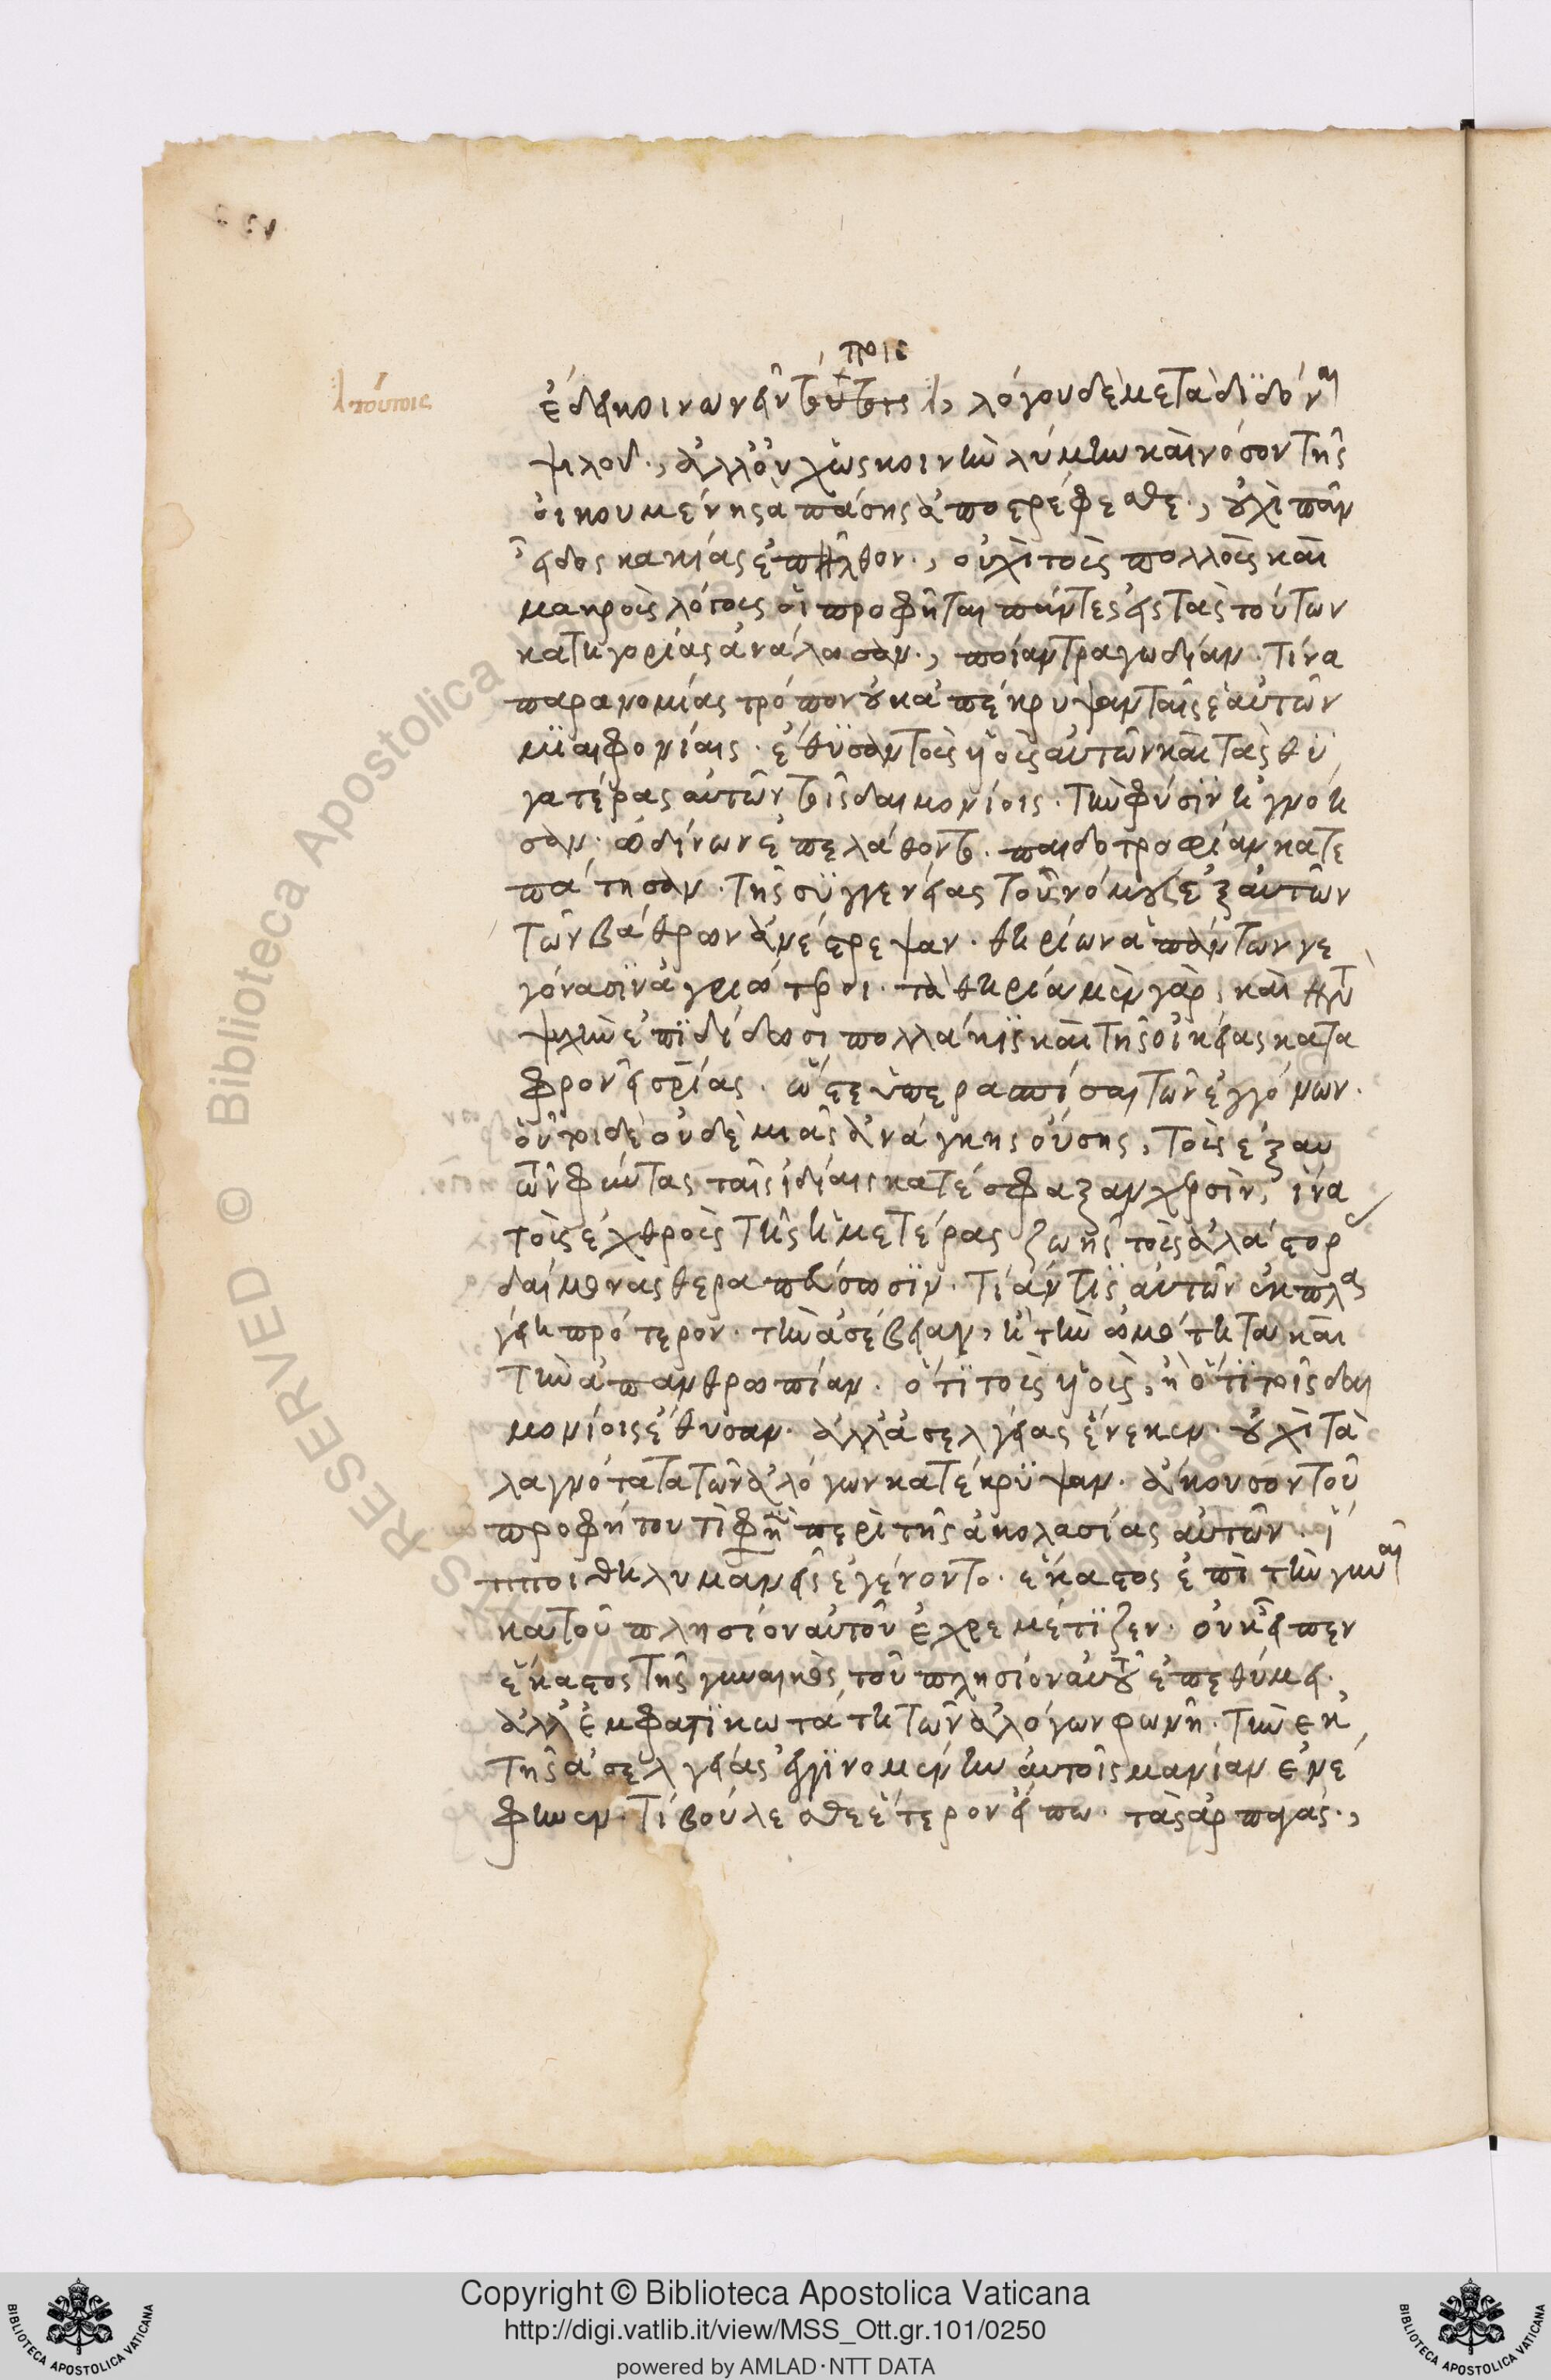 τούτοις
τοις
ἔδει κοινωνεῖν τούτοις, λόγου δὲ μεταδϊδόναι
ψιλοῦ., ἀλλ' οὐχ ὡς κοινὴν λύμην καὶ νόσον τῆς
οἰκουμένης ἁπάσης ἀποστρέφεσθε., οὐχὶ πᾶν
εἶδος κακίας ἐπῆλθον., οὐχὶ τοὺς πολλοὺς καὶ
μακροὺς λόγους οἱ προφῆται πάντες εἰς τὰς τούτων
κατηγορίας ἀνάλωσαν., ποίαν τραγωδίαν. τίνα
παρανομίας τρόπον οὐκ ἀπέκρυψαν ταῖς ἑαυτῶν
μϊαιφονίαις. ἔθϋσαν τοὺς υἱοὺς αὐτῶν καὶ τὰς θϋ
γατέρας αὐτῶν τοῖς δαιμονίοις. τὴν φύσϊν ἠγνόη
σαν. ὠδίνων ἐπελάθοντο. παιδοτροφίαν κατε
πάτησαν. τῆς σϋγγενείας τοὺς νόμους ἐξ αὐτῶν
τῶν βάθρων ἀνέστρεψαν. θηρίων ἁπάντων γε
γόνασϊν ἀγριώτεροι. τὰ θηρία μὲν γὰρ, καὶ τὴν
ψυχὴν ἐπϊδίδωσι πολλάκϊς καὶ τῆς οἰκείας κατα
φρονεῖ σωτηρίας. ὥστε ὑπερασπίσαι τῶν ἐγγόνων.
οὗτοι δὲ οὐδεμιᾶς ἀνάγκης οὔσης, τοὺς ἐξ αυ
τῶν φύντας ταῖς ἰδίαις κατέσφαξαν χερσὶν, ἵνα
τοὺς ἐχθροὺς τῆς ἡμετέρας ζωῆς τοὺς ἀλάστορας
δαίμονας θεραπεύσωσϊν. τί ἄν τϊς αὐτῶν ἐκπλα
γείη πρότερον. τὴν ἀσέβειαν, ἢ τὴν ὠμότητα καὶ
τὴν ἀπανθρωπίαν. ὅτϊ τοὺς υἱοὺς, ἢ ὅτϊ τοῖς δαι
μονίοις ἔθυσαν. ἀλλ' ἀσελγείας ἕνεκεν. οὐχὶ τὰ
λαγνότατα τῶν ἀλόγων κατέκρϋψαν. ἄκουσον τοῦ
προφήτου τί φησὶ περὶ τῆς ἀκολασίας αὐτῶν. ἵ
πποι θηλυμανεῖς ἐγένοντο. ἕκαστος ἐπὶ τὴν γυναῖ
κα τοῦ πλησίον αὐτοῦ ἐχρεμέτϊζεν. οὐκ εἶπεν
ἕκαστος τῆς γυναικὸς τοῦ πλησίον αὐτοῦ ἐπεθύμει.
ἀλλ' ἐμφατϊκωτάτη τῶν ἀλόγων φωνῆ. τὴν ἐκ
τῆς ἀσελγείας ἐγγϊνομένην αὐτοῖς μανίαν ἐνέ
φηνεν. τί βούλεσθε ἕτερον εἴπω. τὰς ἁρπαγάς.,
Copyright © Biblioteca Apostolica Vaticana
http://digi.vatlib.it/view/MSS_Ott.gr.101/0250
powered by AMLAD·NTT DATA